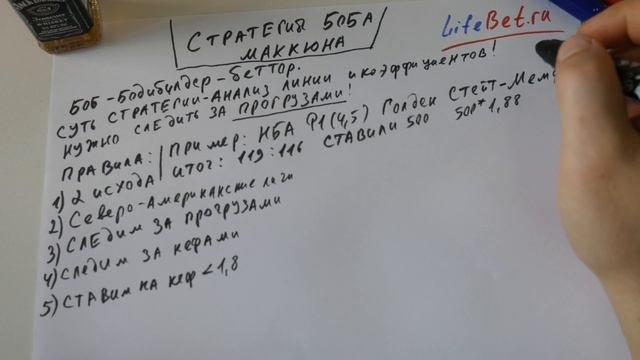 СТРАТЕГИЯ БОБА
МАККЮНА
LifeBet.ru
БОБ - БОДИБИЛДЕР - БЕТТОР.
СУТЬ СТРАТЕГИИ - АНАЛИЗ ЛИНИИ И КОЭФФИЦИЕНТОВ!
НУЖНО СЛЕДИТЬ ЗА ПРОГРУЗАМИ!
ПРАВИЛА: ПРИМЕР: НБА Ф1(4,5) ГОЛДЕН СТЕЙТ-МЕМ
1) 2 ИСХОДА ИТОГ: 119:116 СТАВИЛИ 500 500*1,88
2) СЕВЕРО-АМЕРИКАНСКИЕ ЛИГИ
3) СЛЕДИМ ЗА ПРОГРУЗАМИ
4) СЛЕДИМ ЗА КЕФАМИ
5) СТАВИМ НА КЕФ < 1,8